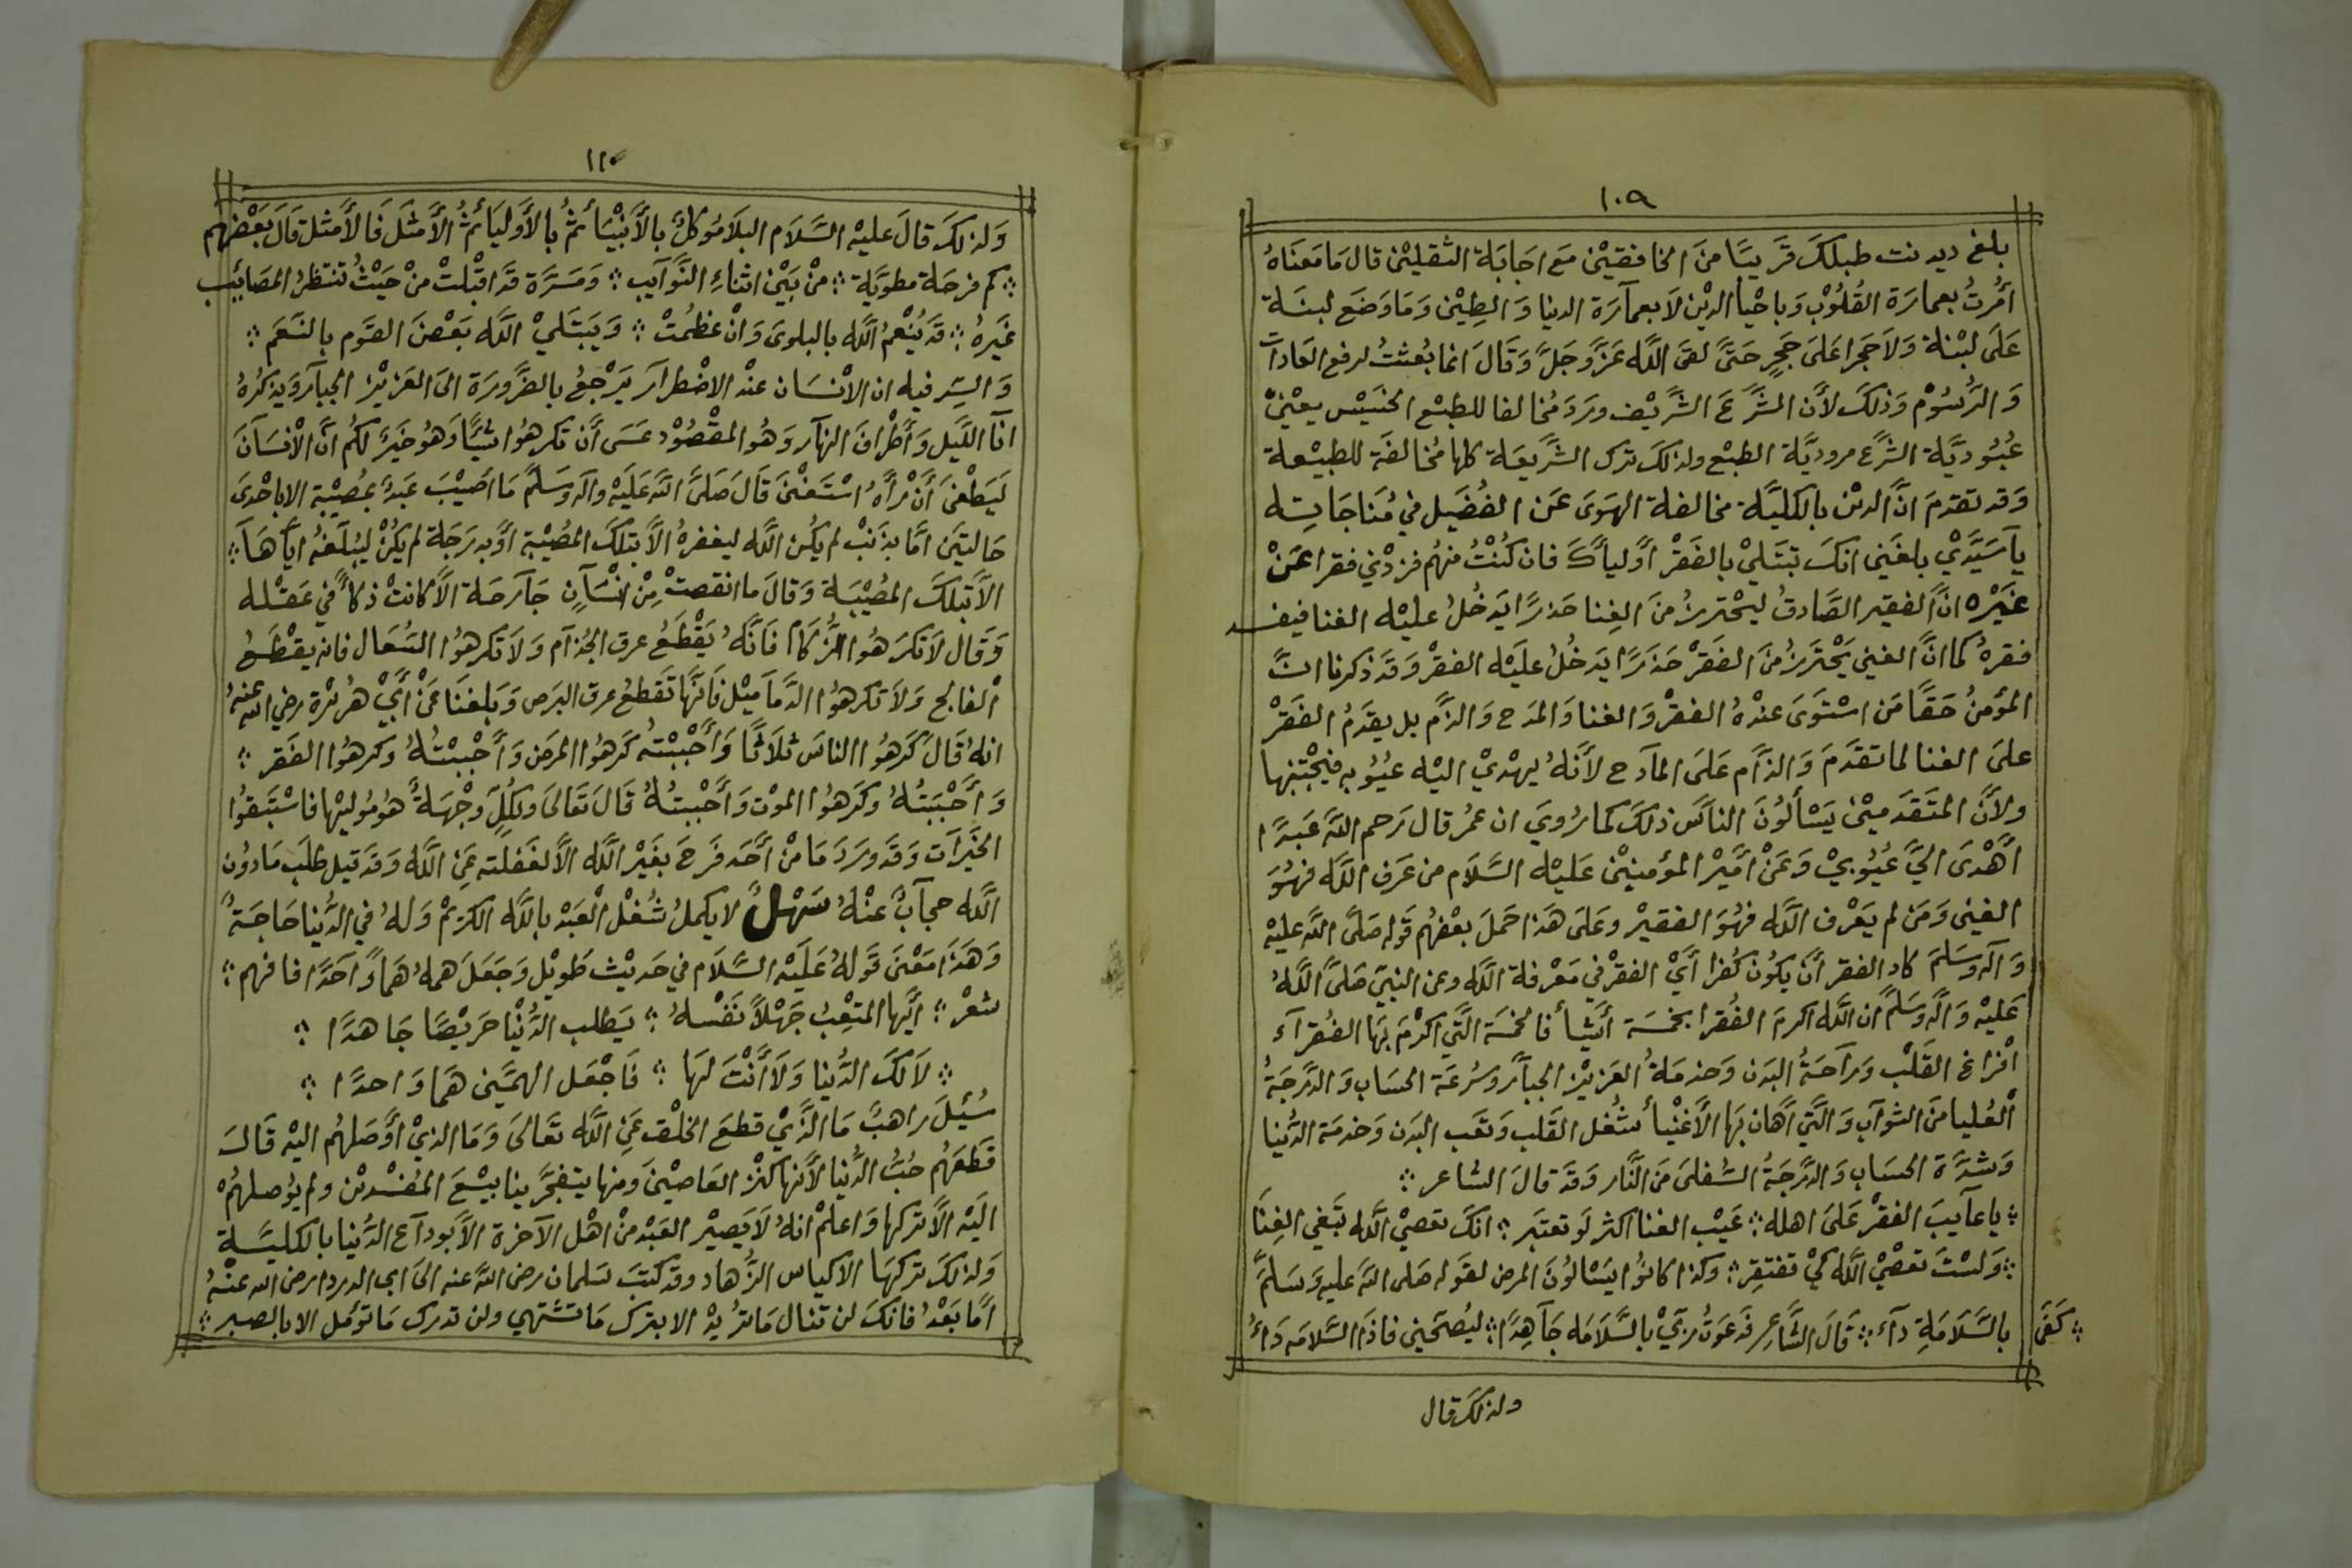 ١٠٩
بلغ ديد نت طبلك قريبًا من الخافقين مع اجابة الثقلين قال ما معناه
امرت بعمارة القلوب وباحيا الدين لا بعمارة الدنيا والطين وما وضع لبنة
على لبنة ولا حجرا على حجر حتى لقى الله عز وجل وقال انما بعثت لرفع العادات
والرسوم وذلك لأن الشرع الشريف ورد مخالفا للطبع الخسيس يعني
عبودية الشرع مرودية الطبع ولذلك ترك الشريعة كلها مخالفة للطبيعة
وقد تقدم ان الدين بالكلية مخالفة الهوى عن الفضيل في مناجاته
يا سيدي بلغني انك تبتلي بالفقر أولياك فان كنت منهم فزدني فقرا عن
غيره ان الفقير الصادق ليحترز من الغنا حذرًا يدخل عليه الغنا فيفسد
فقره كما ان الغني يحترز من الفقر حذرًا يدخل عليه الفقر وقد ذكرنا ان
المؤمن حقًا من استوى عنده الفقر والغنا والمدح والذم بل يقدم الفقر
على الغنا لما تقدم والذام على المادح لأنه يهدي اليه عيوبه فيجتنبها
ولأن المتقدمين يسألون الناس ذلك كما روي ان عمر قال رحم الله عبدًا
أهدى الي عيوبي وعن أمير المؤمنين عليه السلام من عرف الله فهو
الغني ومن لم يعرف الله فهو الفقير وعلى هذا حمل بعضهم قوله صلى الله عليه
وآله وسلم كاد الفقر أن يكون كفرا أي الفقر في معرفة الله وعن النبي صلى الله
عليه وآله وسلم ان الله اكرم الفقرا بخمسة أشيأ فالخمسة التي اكرم بها الفقرآء
افراغ القلب وراحة البدن وخدمة العزيز الجبار وسرعة الحساب والدرجة
العليا من الثواب والتي أهان بها الأغنيأ شغل القلب وتعب البدن وخدمة الدنيا
وشدة الحساب والدرجة السفلى من النار وقد قال الشاعر ؞
؞ يا عايب الفقر على اهله ؞ عيب الغنا اكثر لو تعتبر ؞ انك تعصي الله تبغي الغنا
؞ ولست تعصي الله كي تفتقر ؞ وكذا كانوا يسالون المرض لقوله صلى الله عليه وسلم
؞ كفى بالسلامة دآء ؞ قال الشاعر فدعوت ربي بالسلامه جاهدًا ؞ ليصحني فاذا السلامه داء
ولذلك قال
١١٠
ولذلك قال عليه السلام البلا موكل بالأنبيأ ثم بالأوليأ ثم الأمثل فالأمثل قال بعضهم
؞ كم فرحة مطوية ؞ من بين اثناء النوآيب ؞ ومسرة قد اقبلت من حيث تنتظر المصائب
غيره ؞ قد ينعم الله بالبلوى وان عظمت ؞ ويبتلي الله بعض القوم بالنعم ؞
والسر فيه ان الانسان عند الاضطرار يرجع بالضرورة الى العزيز الجبار ويذكره
انآ الليل وأطراف النهار وهو المقصود عسى أن تكرهوا شيًا وهو خير لكم ان الانسان
ليطغى أن رأه استغنى قال صلى الله عليه وآله وسلم ما أصيب عبد بمصيبة الا باحدى
حالتين اما بذنب لم يكن الله ليغفره الا بتلك المصيبة او بدرجة لم يكن ليبلغه اياها ؞
الا بتلك المصيبة وقال ما انقصت من انسان جارحة الا كانت ذكأ في عقله
وقال لا تكرهوا الزكام فانه يقطع عرق الجذام ولا تكرهوا السعال فانه يقطع
الفالج ولا تكرهوا الدماميل فانها تقطع عرق البرص وبلغنا عن أبي هريرة رضي الله عنه
انه قال كرهوا الناس ثلاثا وأحببته كرهوا المرض وأحببته وكرهوا الفقر ؞
وأحببته وكرهوا الموت وأحببته قال تعالى ولكل وجهة هو موليها فاستبقوا
الخيرات وقد ورد ما من أحد فرح بغير الله الا لغفلته عن الله وقد قيل طلب ما دون
الله حجاب عنه سهل لا يكمل شغل العبد بالله الكريم وله في الدنيا حاجة
وهذا معنى قوله عليه السلام في حديث طويل وجعل همه هما واحدًا فافهم ؞
شعر ؞ أيها المتعب جهلا نفسه ؞ يطلب الدنيا حريصا جاهدًا ؞
؞ لا لك الدنيا ولا أنت لها ؞ فاجعل الهمين هما واحدًا ؞
سئل راهب ما الذي قطع الخلق عن الله تعالى وما الذي أوصلهم اليه قال
قطعهم حب الدنيا لأنها كنز العاصين ومنها يتفجر ينابيع المفسدين ولم يوصلهم
اليه الا تركها واعلم انه لا يصير العبد من اهل الآخرة الا بوداع الدنيا بالكلية
ولذلك تركها الاكياس الزهاد وقد كتب سلمان رضى الله عنه الى ابي الدردا رضى الله عنه
أما بعد فانك لن تنال ما تريد الا بترك ما تشتهي ولن تدرك ما تؤمل الا بالصبر ؞